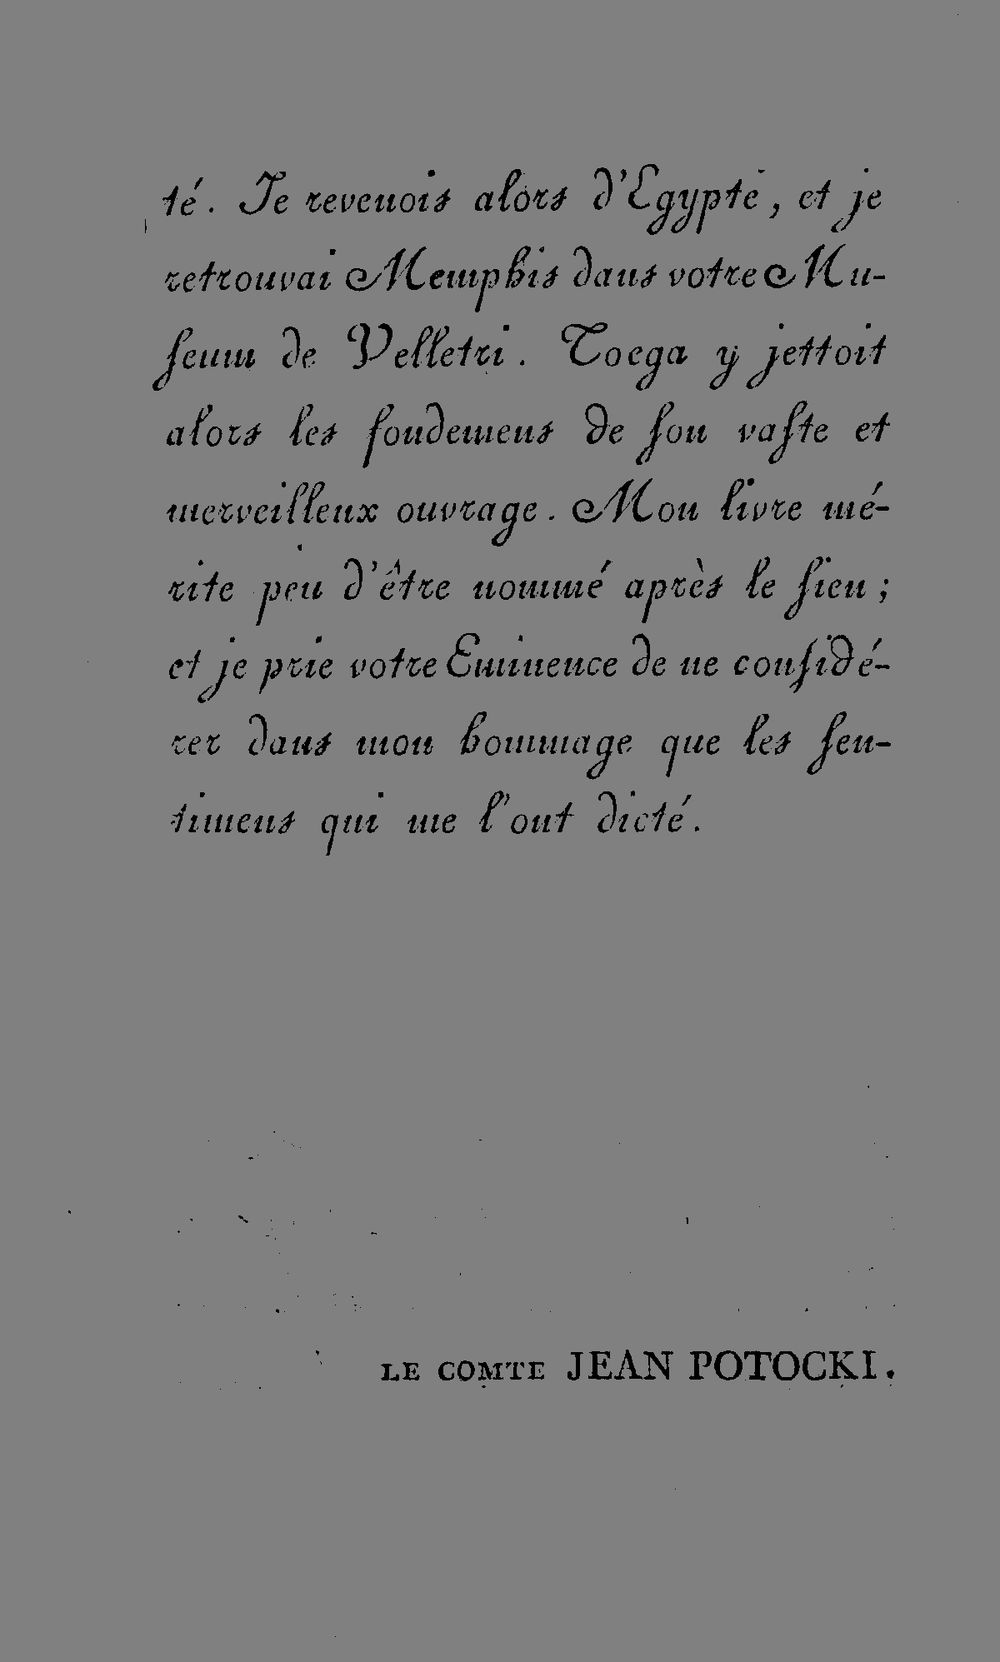 té. Je revenois alors d'Egypte, et je
retrouvai Memphis dans votre Mu-
ſeum de Velletri. Zoega y jettoit
alors les fondemens de ſon vaſte et
merveilleux ouvrage. Mon livre mé-
rite peu d'être nommé après le ſien ;
et je prie votre Eminence de ne conſidé-
rer dans mon hommage que les ſen-
timens qui me l'ont dicté.
LE COMTE JEAN POTOCKI.